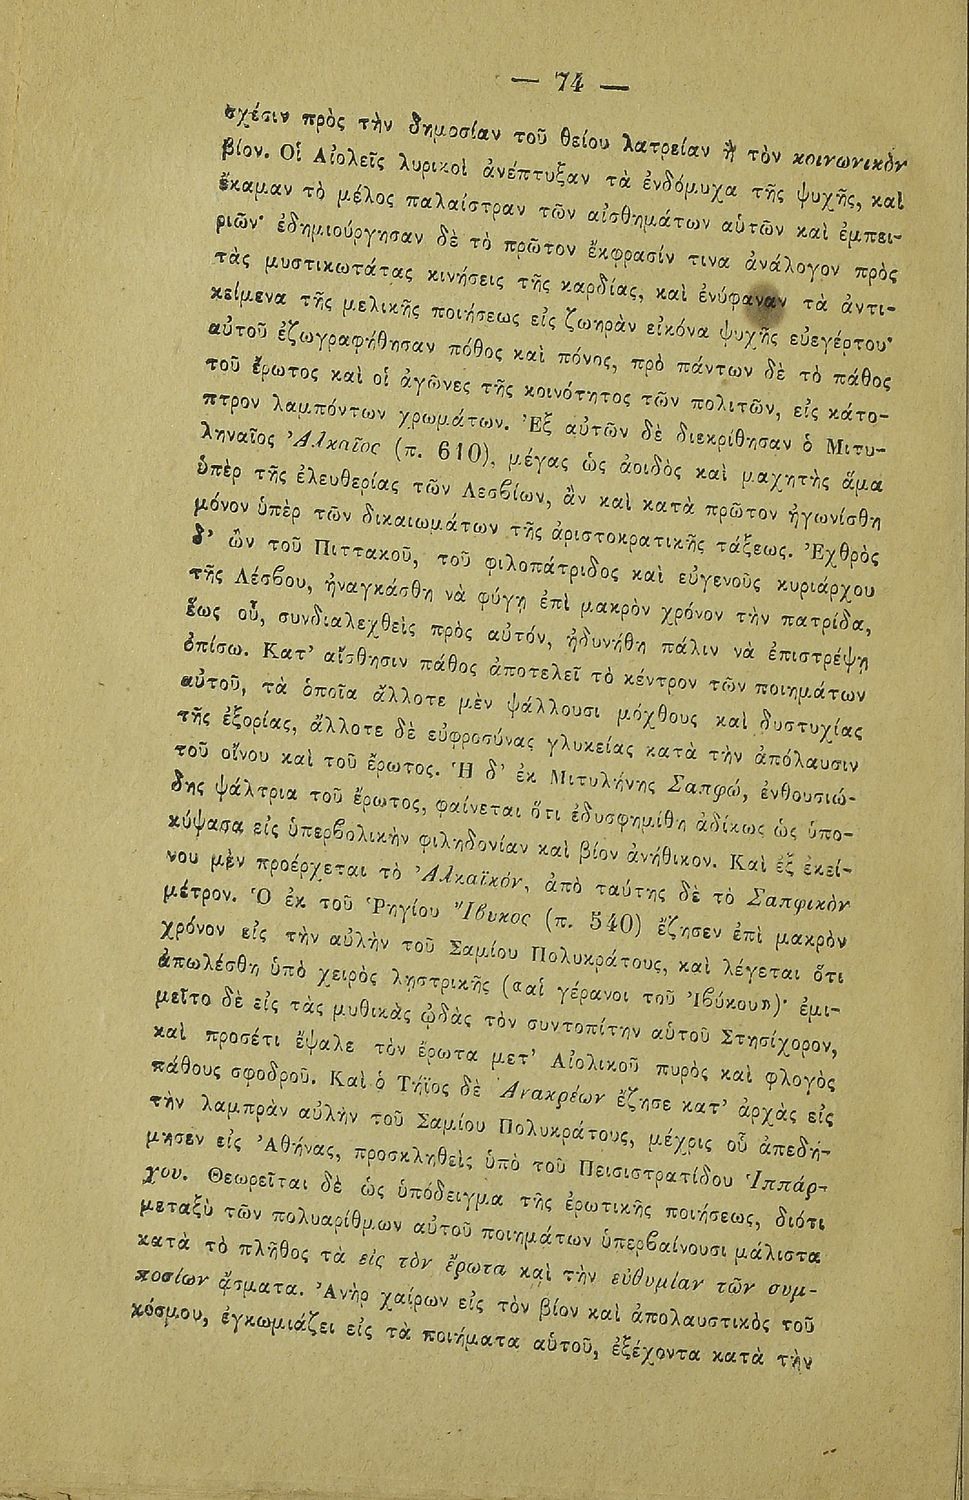 — 74 —
σχέσιν πρὸς τὴν δημοσίαν τοῦ θείου λατρείαν ἢ τὸν κοινωνικὸν
βίον. Οἱ Αἰολεῖς λυρικοὶ ἀνέπτυξαν τὰ ἐνδόμυχα τῆς ψυχῆς, καὶ
ἔκαμαν τὸ μέλος παλαίστραν τῶν αἰσθημάτων αὑτῶν καὶ ἐμπει-
ριῶν· ἐδημιούργησαν δὲ τὸ πρῶτον ἔκφρασίν τινα ἀνάλογον πρὸς
τὰς μυστικωτάτας κινήσεις τῆς καρδίας, καὶ ἐνύφαναν τὰ ἀντι-
κείμενα τῆς μελικῆς ποιήσεως εἰς ζωηρὰν εἰκόνα ψυχῆς εὐεγέρτου·
αὐτοῦ ἐζωγραφήθησαν πόθος καὶ πόνος, πρὸ πάντων δὲ τὸ πάθος
τοῦ ἔρωτος καὶ οἱ ἀγῶνες τῆς κοινότητος τῶν πολιτῶν, εἰς κάτο-
πτρον λαμπόντων χρωμάτων. Ἐξ αὐτῶν δὲ διεκρίθησαν ὁ Μιτυ-
ληναῖος Ἀλκαῖος (π. 610), μέγας ὡς ἀοιδὸς καὶ μαχητὴς ἅμα
ὑπὲρ τῆς ἐλευθερίας τῶν Λεσβίων, ἂν καὶ κατὰ πρῶτον ἠγωνίσθη
μόνον ὑπὲρ τῶν δικαιωμάτων τῆς ἀριστοκρατικῆς τάξεως. Ἐχθρὸς
δ' ὢν τοῦ Πιττακοῦ, τοῦ φιλοπάτριδος καὶ εὐγενοῦς κυριάρχου
τῆς Λέσβου, ἠναγκάσθη νὰ φύγῃ ἐπὶ μακρὸν χρόνον τὴν πατρίδα,
ἕως οὗ, συνδιαλεχθεὶς πρὸς αὐτόν, ἠδυνήθη πάλιν νὰ ἐπιστρέψῃ
ὀπίσω. Κατ' αἴσθησιν πάθος ἀποτελεῖ τὸ κέντρον τῶν ποιημάτων
αὐτοῦ, τὰ ὁποῖα ἄλλοτε μὲν ψάλλουσι μόχθους καὶ δυστυχίας
τῆς ἐξορίας, ἄλλοτε δὲ εὐφροσύνας γλυκείας κατὰ τὴν ἀπόλαυσιν
τοῦ οἴνου καὶ τοῦ ἔρωτος. Ἡ δ' ἐκ Μιτυλήνης Σαπφώ, ἐνθουσιώ-
δης ψάλτρια τοῦ ἔρωτος, φαίνεται ὅτι ἐδυσφημίθη ἀδίκως ὡς ὑπο-
κύψασα εἰς ὑπερβολικὴν φιληδονίαν καὶ βίον ἀνήθικον. Καὶ ἐξ ἐκεί-
νου μὲν προέρχεται τὸ Ἀλκαϊκόν, ἀπὸ ταύτης δὲ τὸ Σαπφικὸν
μέτρον. Ὁ ἐκ τοῦ Ῥηγίου Ἴβυκος (π. 540) ἔζησεν ἐπὶ μακρὸν
χρόνον εἰς τὴν αὐλὴν τοῦ Σαμίου Πολυκράτους, καὶ λέγεται ὅτι
ἀπωλέσθη ὑπὸ χειρὸς λῃστρικῆς («αἱ γέρανοι τοῦ Ἰβύκου»)· ἐμι-
μεῖτο δὲ εἰς τὰς μυθικὰς ᾠδὰς τὸν συντοπίτην αὑτοῦ Στησίχορον,
καὶ προσέτι ἔψαλε τὸν ἔρωτα μετ' Αἰολικοῦ πυρὸς καὶ φλογὸς
πάθους σφοδροῦ. Καὶ ὁ Τήϊος δὲ Ἀνακρέων ἔζησε κατ' ἀρχὰς εἰς
τὴν λαμπρὰν αὐλὴν τοῦ Σαμίου Πολυκράτους, μέχρις οὗ ἀπεδή-
μησεν εἰς Ἀθήνας, προσκληθεὶς ὑπὸ τοῦ Πεισιστρατίδου Ἱππάρ-
χου. Θεωρεῖται δὲ ὡς ὑπόδειγμα τῆς ἐρωτικῆς ποιήσεως, διότι
μεταξὺ τῶν πολυαρίθμων αὐτοῦ ποιημάτων ὑπερβαίνουσι μάλιστα
κατὰ τὸ πλῆθος τὰ εἰς τὸν ἔρωτα καὶ τὴν εὐθυμίαν τῶν συμ-
ποσίων ᾄσματα. Ἀνὴρ χαίρων εἰς τὸν βίον καὶ ἀπολαυστικὸς τοῦ
κόσμου, ἐγκωμιάζει εἰς τὰ ποιήματα αὑτοῦ, ἐξέχοντα κατὰ τὴν